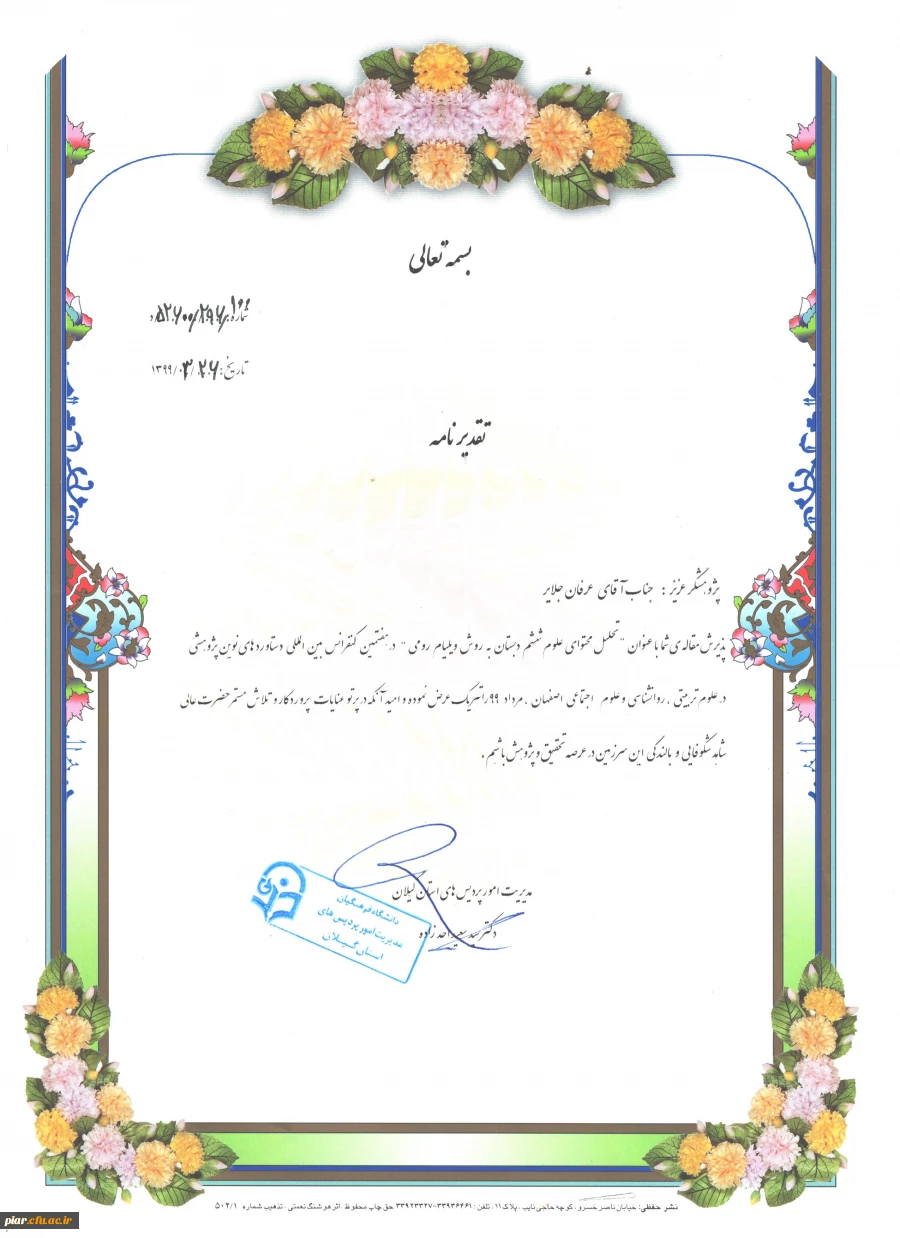 بسمه تعالی
شماره: ۵۲۶۰۰/۲۹۶/۱۰۰/د
تاریخ: ۱۳۹۹/۰۳/۲۶
تقدیر نامه
پژوهشگر عزیز : جناب آقای عرفان جلایر
پذیرش مقاله ی شما با عنوان " تحلیل محتوای علوم ششم دبستان به روش ویلیام رومی " در هفتمین کنفرانس بین المللی دستاورد های نوین پژوهشی
در علوم تربیتی ، روانشناسی و علوم اجتماعی اصفهان ، مرداد ۹۹ را تبریک عرض نموده و امید آنکه در پرتو عنایات پروردگار و تلاش مستمر حضرت عالی
شاهد شکوفایی و بالندگی این سرزمین در عرصه تحقیق و پژوهش باشیم .
مدیریت امور پردیس های استان گیلان
دکتر سید سعید احد زاده
دانشگاه فرهنگیان
مدیریت امور پردیس های
استان گیلان
نشر حفظی: خیابان ناصر خسرو، کوچه حاجی نایب، پلاک ۱۱، تلفن: ۳۳۹۳۶۴۶۱-۳۳۹۲۳۳۲۷ حق چاپ محفوظ اثر هوشنگ نعمتی، تذهیب شماره ۵۰۲/۱
piar.cfu.ac.ir